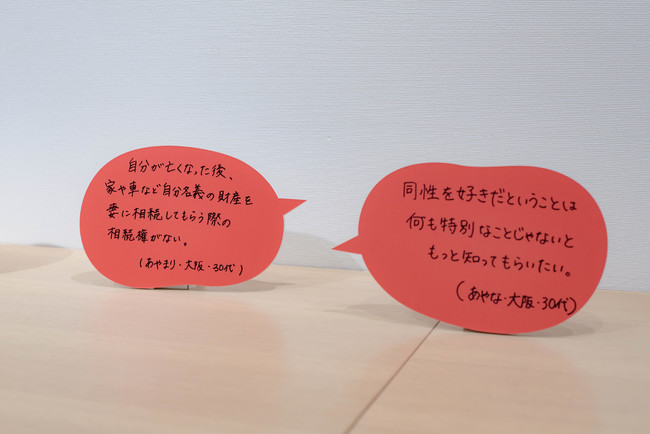 自分が亡くなった後、
家や車など自分名義の財産を
妻に相続してもらう際の
相続権がない。
(あやまり・大阪・30代)
同性を好きだということは
何も特別なことじゃないと
もっと知ってもらいたい。
(あやな・大阪・30代)